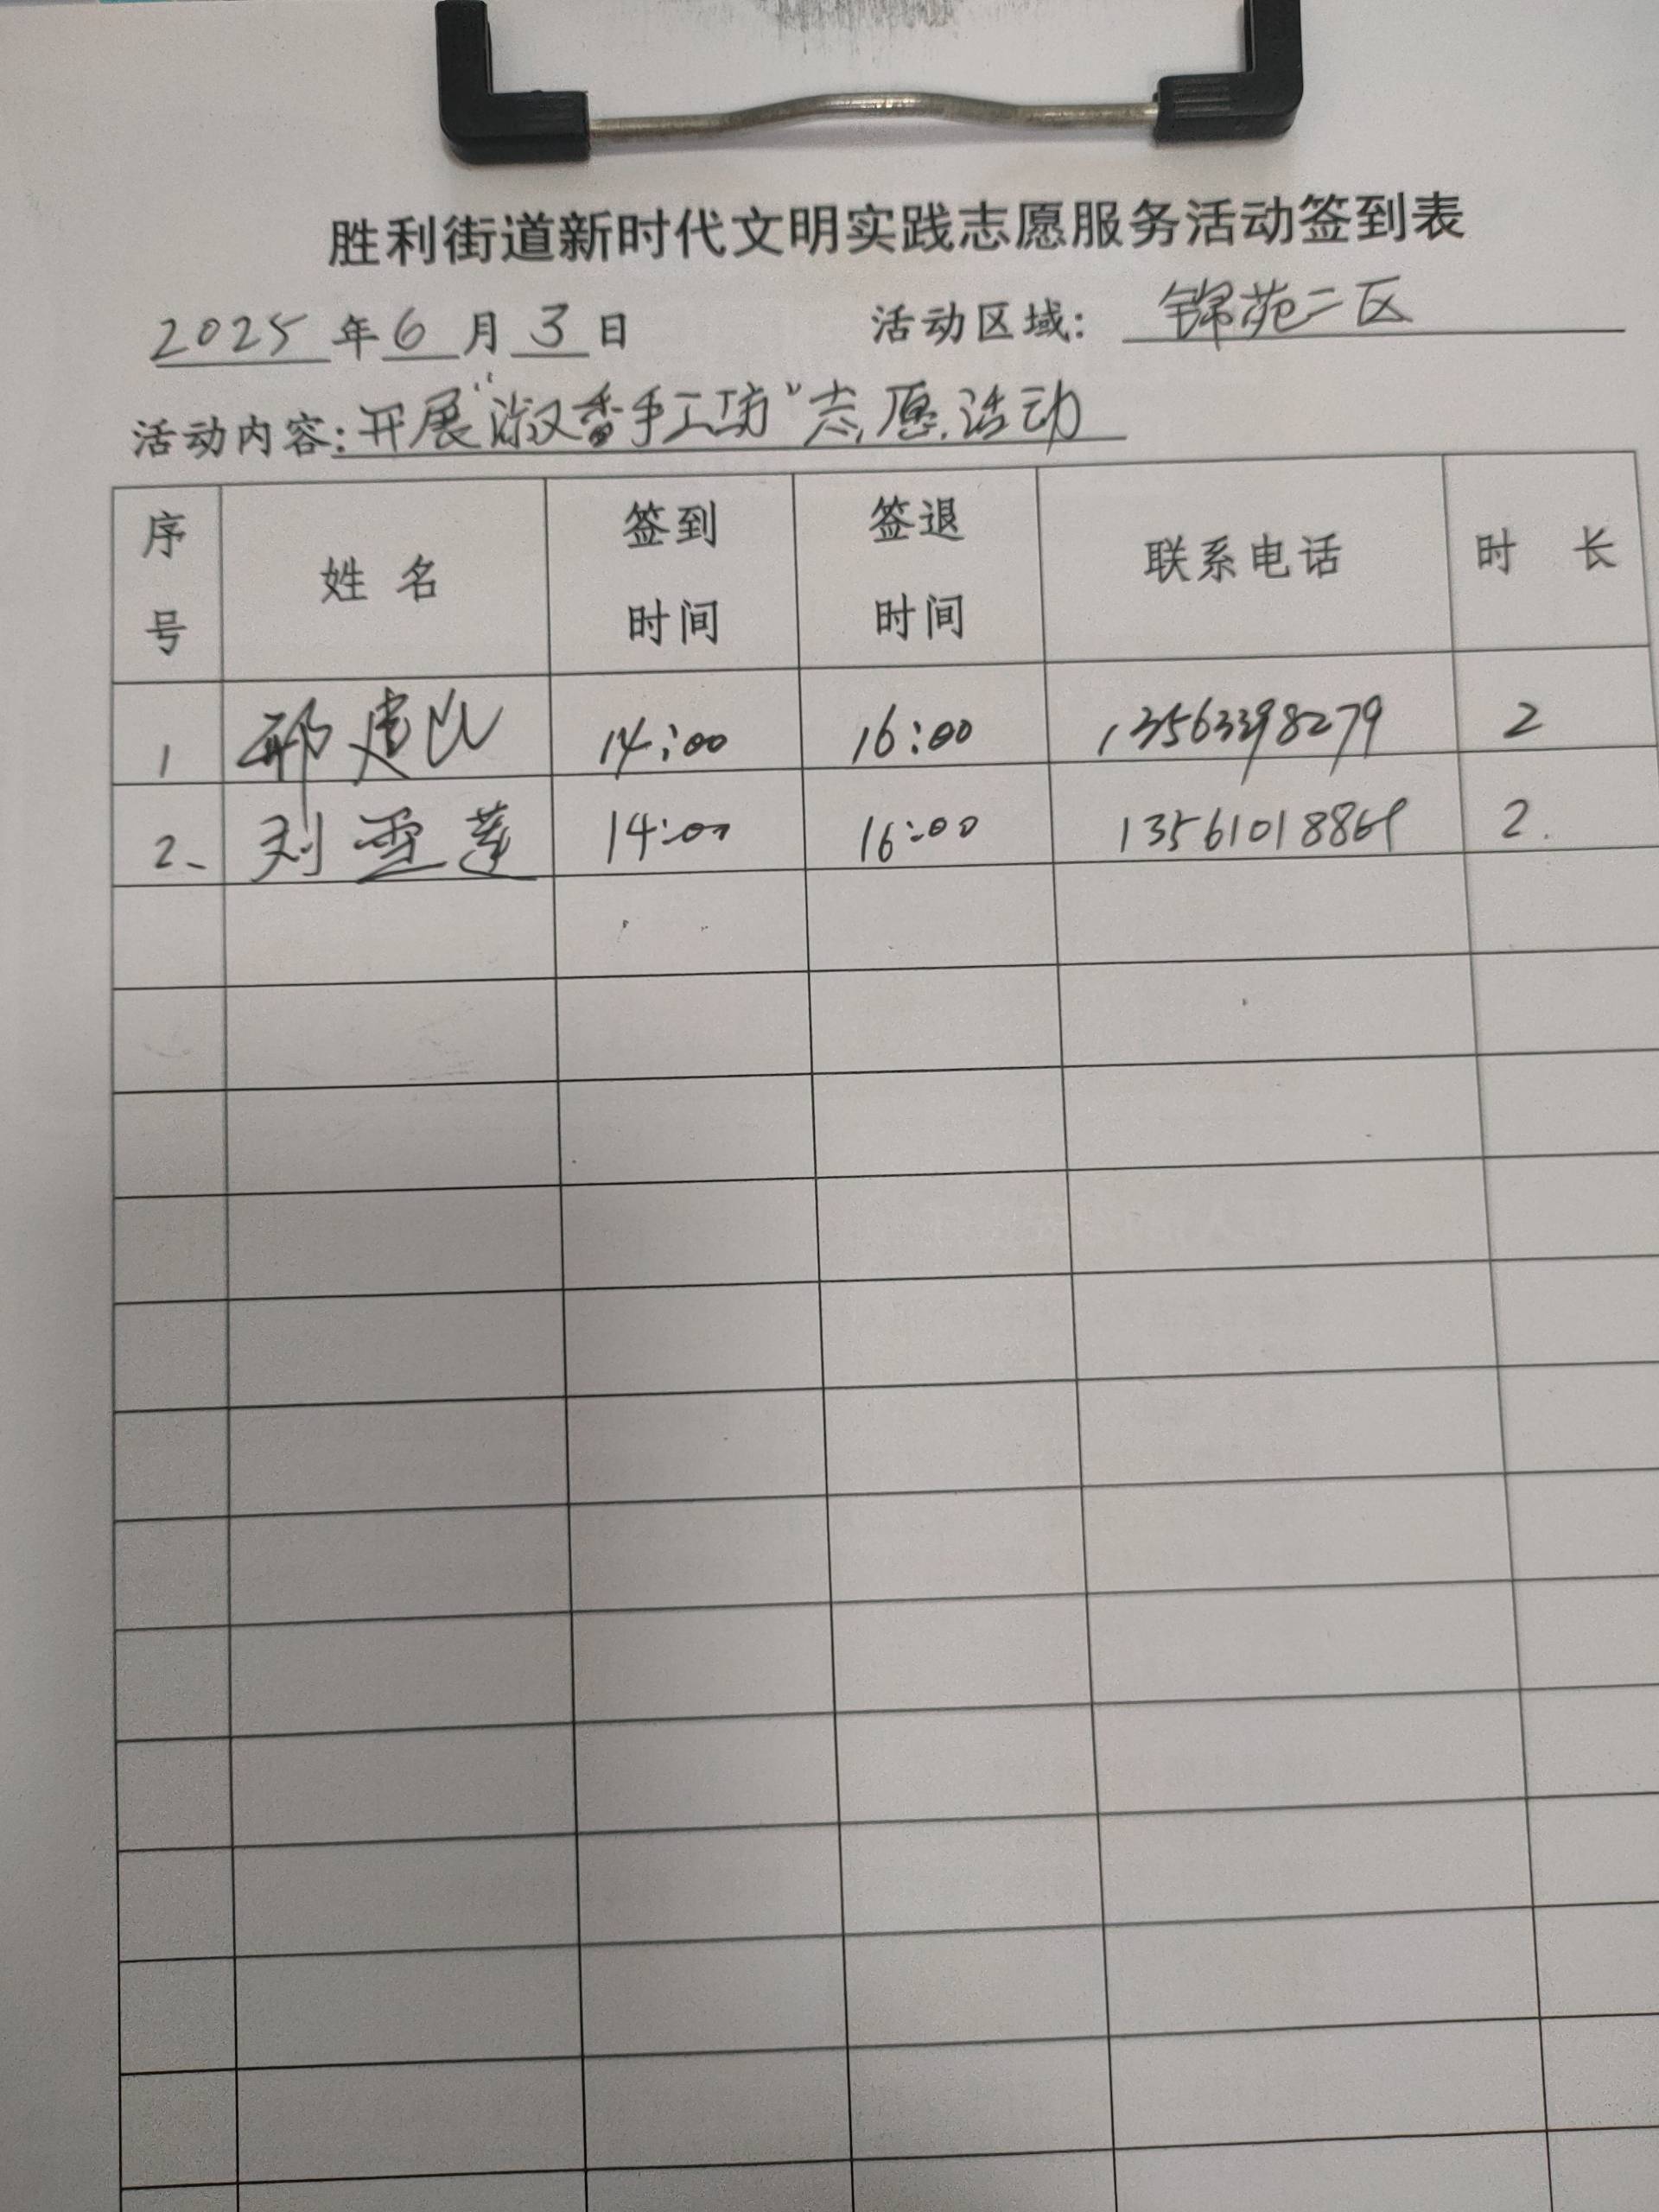 胜利街道新时代文明实践志愿服务活动签到表
2025 年 6 月 3 日 活动区域: 锦苑二区
活动内容: 开展“淑香手工坊”志愿活动
序号 姓名 签到时间 签退时间 联系电话 时长
1 邢建 14:00 16:00 13563398279 2
2、 刘雪莲 14:00 16:00 2.